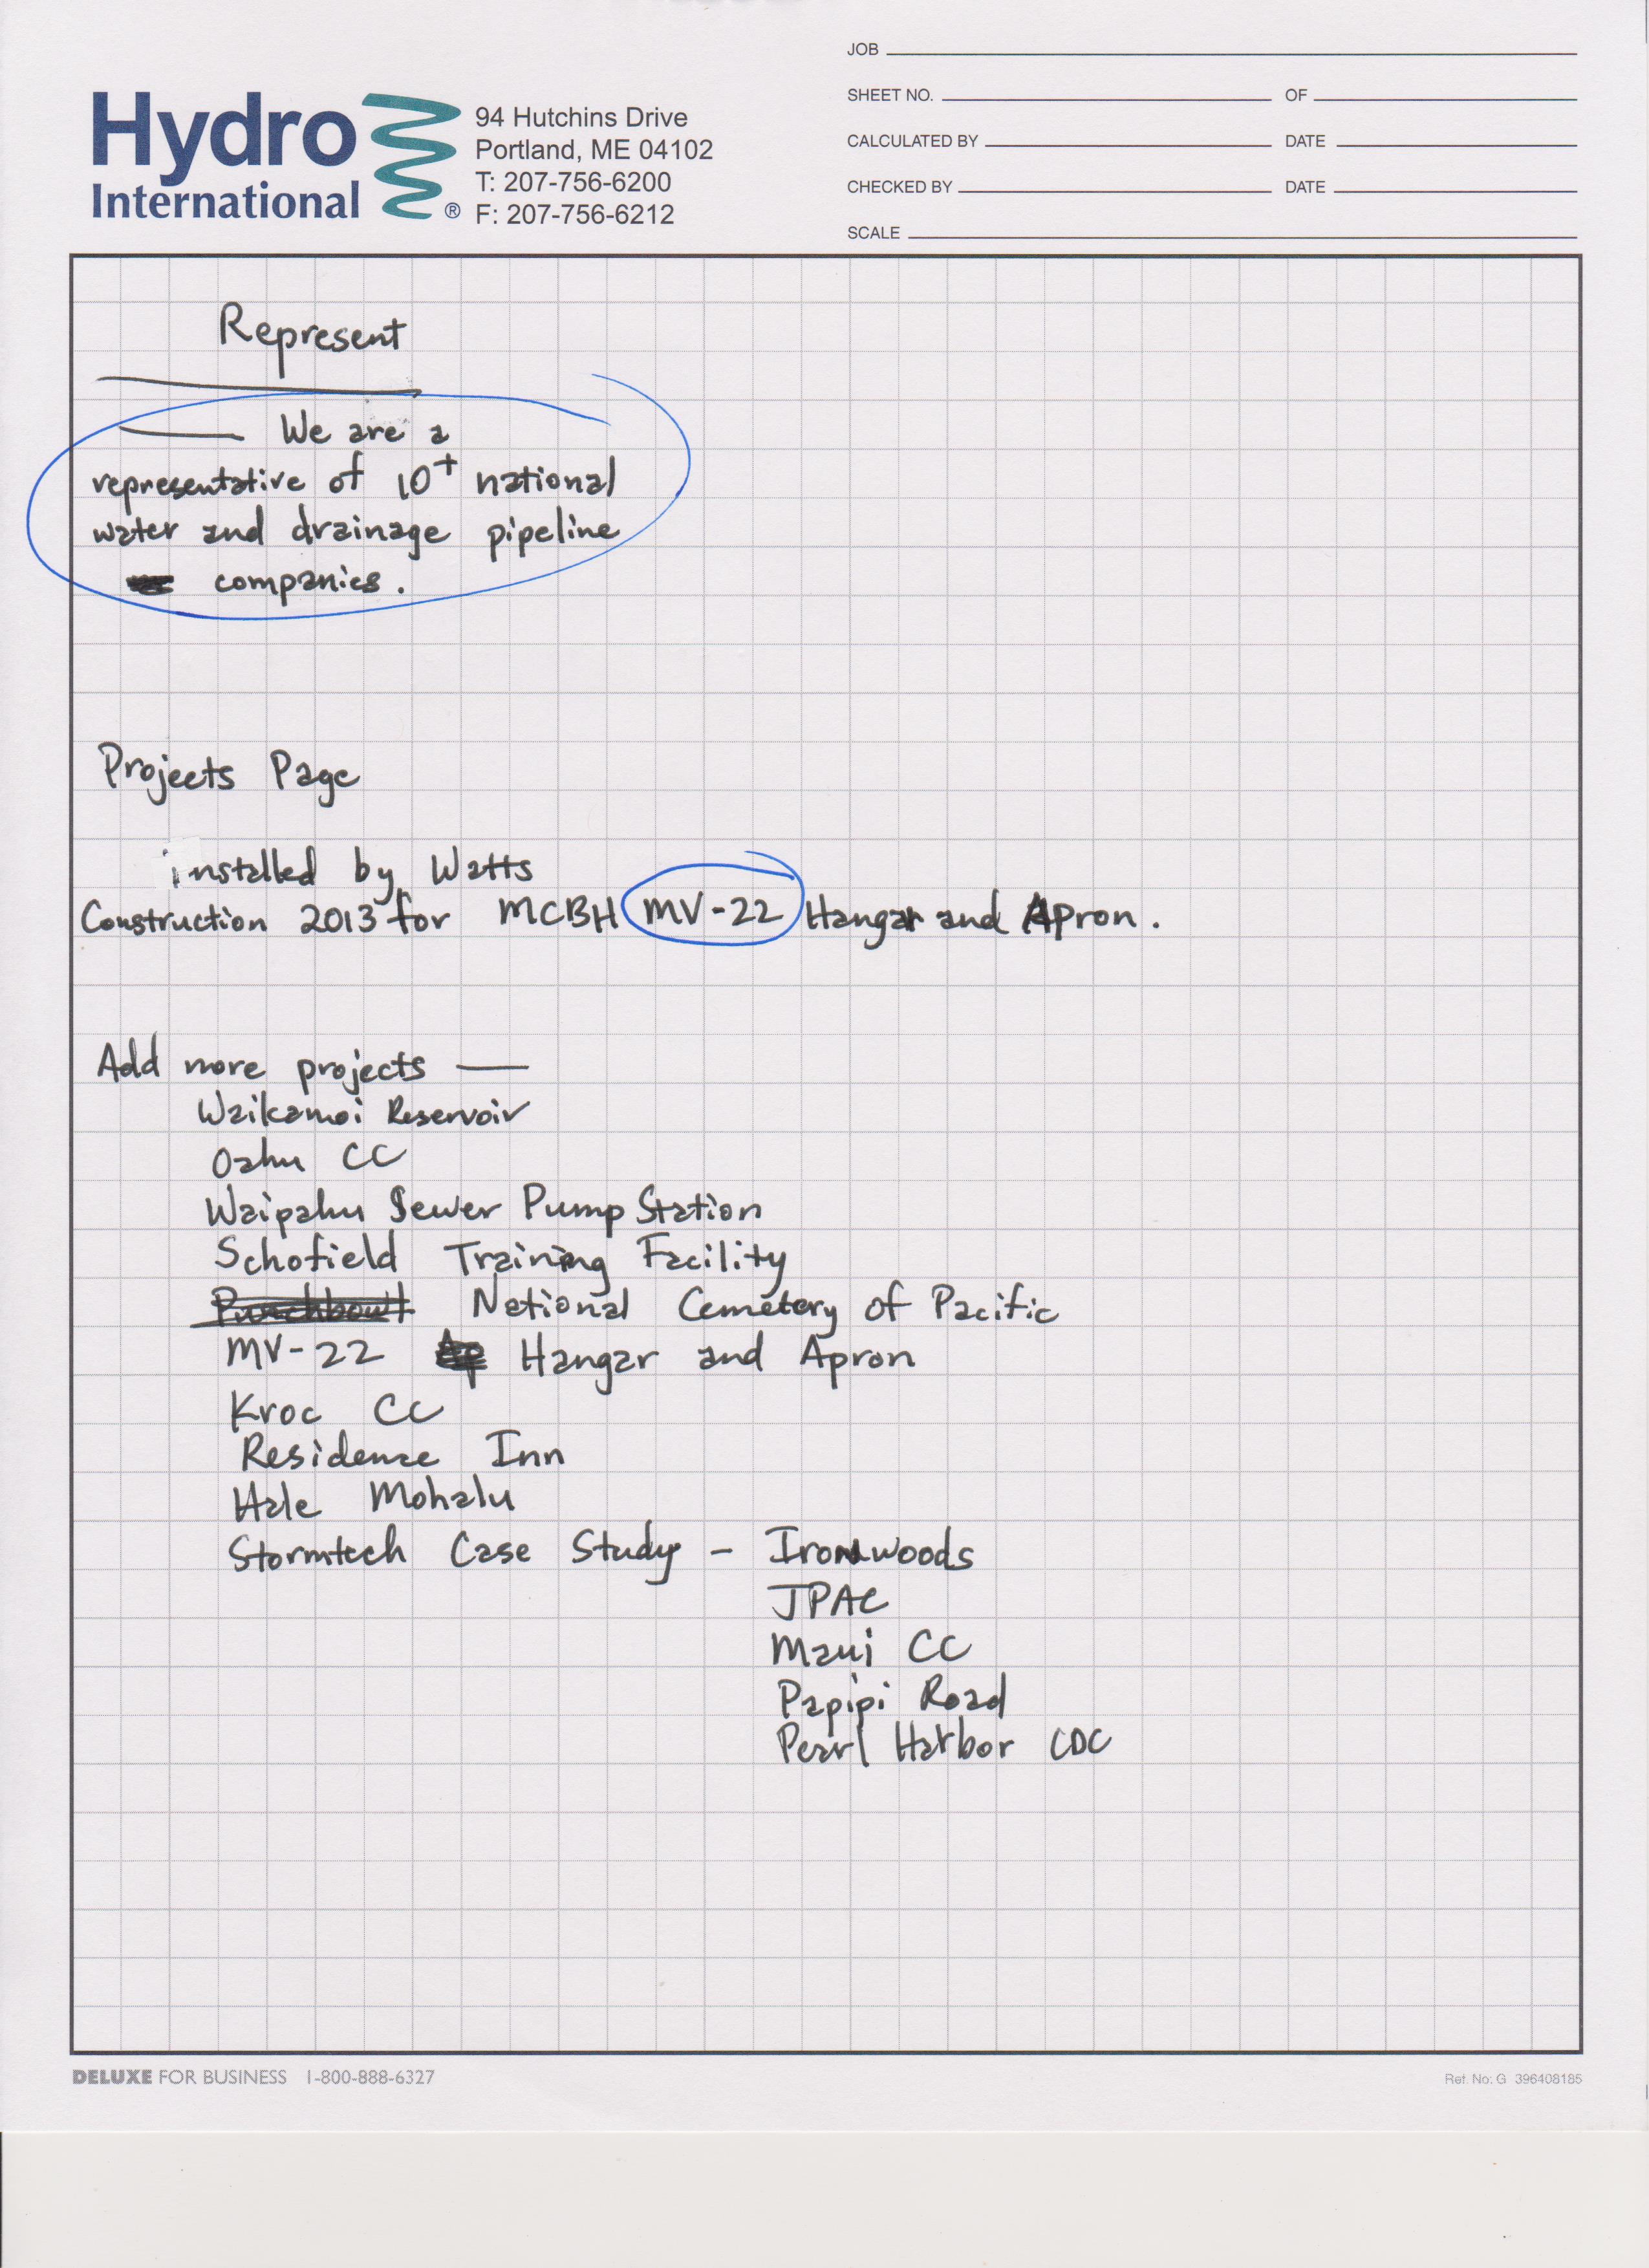 Hydro
International ®
94 Hutchins Drive
Portland, ME 04102
T: 207-756-6200
F: 207-756-6212
JOB
SHEET NO. OF
CALCULATED BY DATE
CHECKED BY DATE
SCALE
Represent
We are a
representative of 10+ national
water and drainage pipeline
companies.
Projects Page
installed by Watts
Construction 2013 for MCBH MV-22 Hangar and Apron.
Add more projects —
Waikamoi Reservoir
Oahu CC
Waipahu Sewer Pump Station
Schofield Training Facility
Punchbowl National Cemetery of Pacific
MV-22 Hangar and Apron
Kroc CC
Residence Inn
Hale Mohalu
Stormtech Case Study - Ironwoods
JPAC
Maui CC
Papipi Road
Pearl Harbor CDC
DELUXE FOR BUSINESS 1-800-888-6327
Ref. No: G 396408185